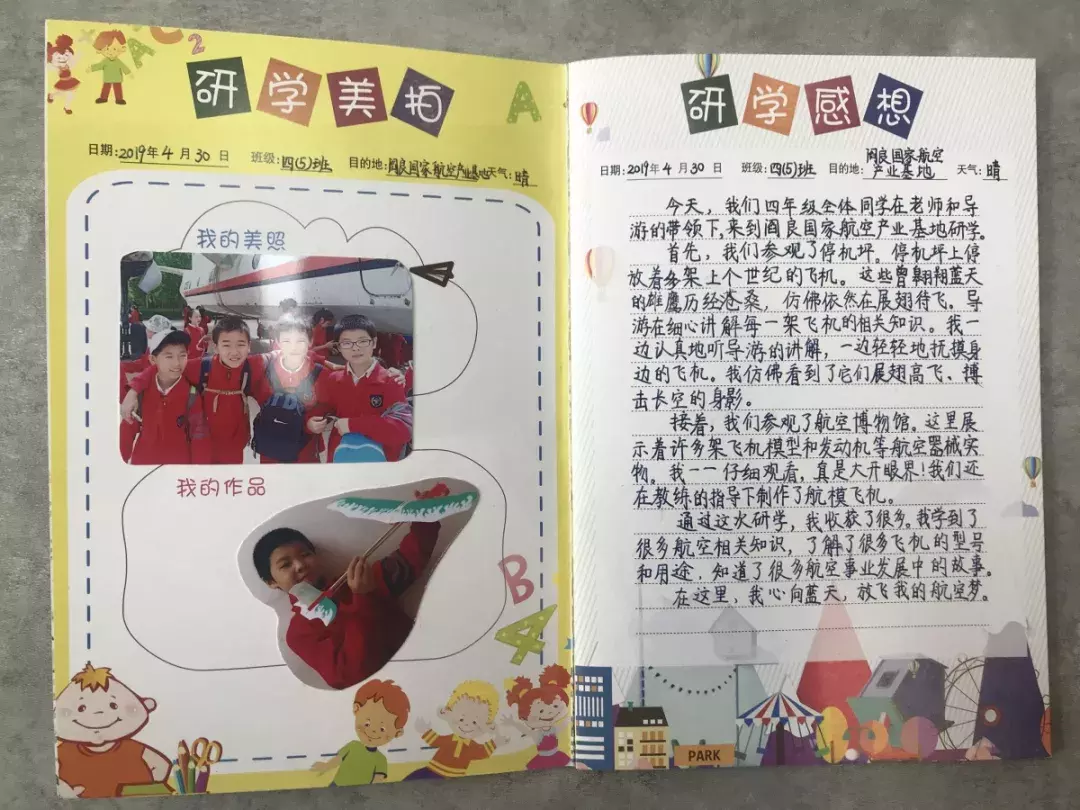 研学美拍
日期:2019年4月30日 班级:四(5)班 目的地:阎良国家航空产业基地 天气:晴
我的美照
我的作品
A
B
4
A
C
2
研学感想
日期:2019年4月30日 班级:四(5)班 目的地:阎良国家航空
产业基地 天气:晴
今天,我们四年级全体同学在老师和导
游的带领下,来到阎良国家航空产业基地研学。
首先,我们参观了停机坪。停机坪上停
放着多架上个世纪的飞机。这些曾翱翔蓝天
的雄鹰历经沧桑,仿佛依然在展翅待飞。导
游在细心讲解每一架飞机的相关知识。我一
边认真地听导游的讲解,一边轻轻地抚摸身
边的飞机。我仿佛看到了它们展翅高飞、搏
击长空的身影。
接着,我们参观了航空博物馆。这里展
示着许多架飞机模型和发动机等航空器械实
物。我一一仔细观看,真是大开眼界!我们还
在教练的指导下制作了航模飞机。
通过这次研学,我收获了很多。我学到了
很多航空相关知识,了解了很多飞机的型号
和用途,知道了很多航空事业发展中的故事。
在这里,我心向蓝天,放飞我的航空梦。
PARK